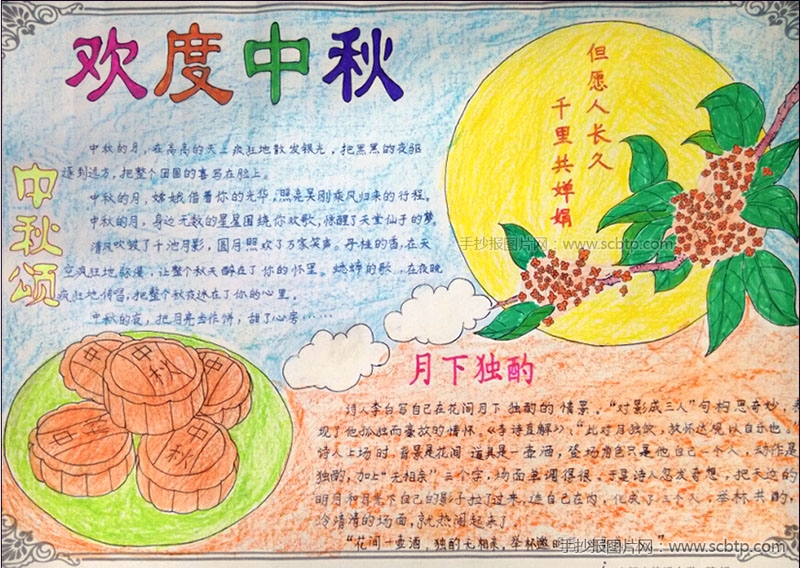 欢度中秋
但愿人长久
千里共婵娟
中秋颂
中秋的月,在高高的天上疯狂地散发银光,把黑黑的夜驱
逐到远方,把整个团圆的喜写在脸上。
中秋的月,嫦娥借着你的光华,照亮吴刚乘风归来的行程。
中秋的月,身边无数的星星围绕你欢歌,惊醒了天堂仙子的梦。
清风吹皱了千池月影,圆月照欢了万家笑声。丹桂的香,在天
空疯狂地弥漫,让整个秋天醉在了你的怀里。蟋蟀的歌,在夜晚
疯狂地传唱,把整个秋夜泳在了你的心里。
中秋的夜,把月亮当作饼,甜了心房……
手抄报图片网:www.scbtp.com
中
中秋
中
秋
月下独酌
诗人李白写自己在花间月下独酌的情景。“对影成三人”句构思奇妙,表
现了他孤独而豪放的情怀。《李诗直解》:“此对月独饮,放怀达观以自乐也。
诗人上场时,背景是花间,道具是一壶酒,登场角色只是他自己一个人,动作是
独酌,加上“无相亲”三个字,场面单调得很。于是诗人忽发奇想,把天边的
明月和月光下自己的影子拉了过来,连自己在内,化成了三个人,举杯共酌,
冷清清的场面,就热闹起来了
“花间一壶酒,独酌无相亲,举杯邀
手抄报图片网:www.scbtp.com